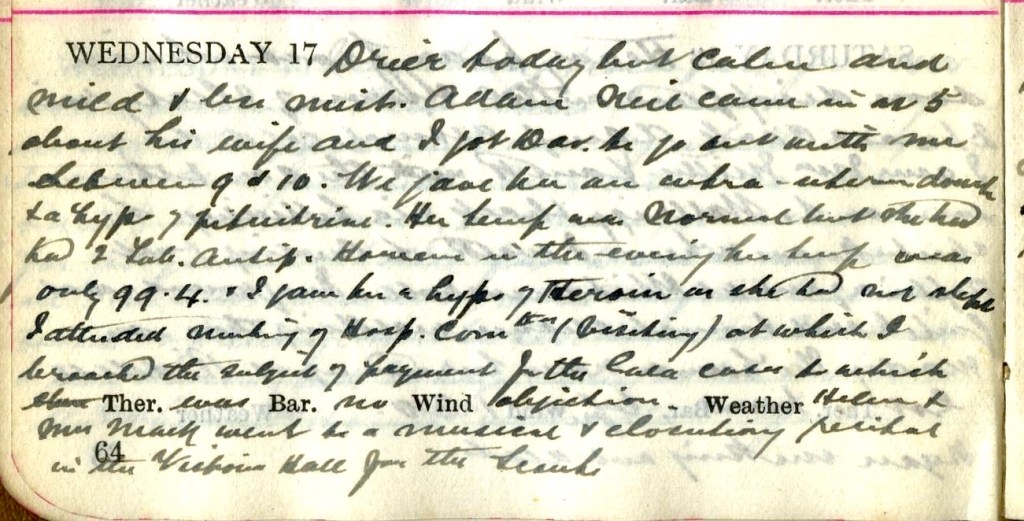 WEDNESDAY 17 Drier today but calm and
mild & less mist. Adam Neil came in at 5
about his wife and I got Dav. to go out with me
between 9 & 10. We gave her an intra-uterine douche
& a hypo of pituitrine. Her temp was normal but she had
had 2 Tab. Antip. However in the evening her temp was
only 99.4. & I gave her a hypo of Heroin as she had not slept
I attended meeting of Hosp. Comtee (Visiting) at which I
broached the subject of payment for the cases to which
Ther. was Bar. no Wind objection. Weather Helen &
Mrs Mack went to a musical & elocution recital
64
in the Victoria Hall for the Scouts